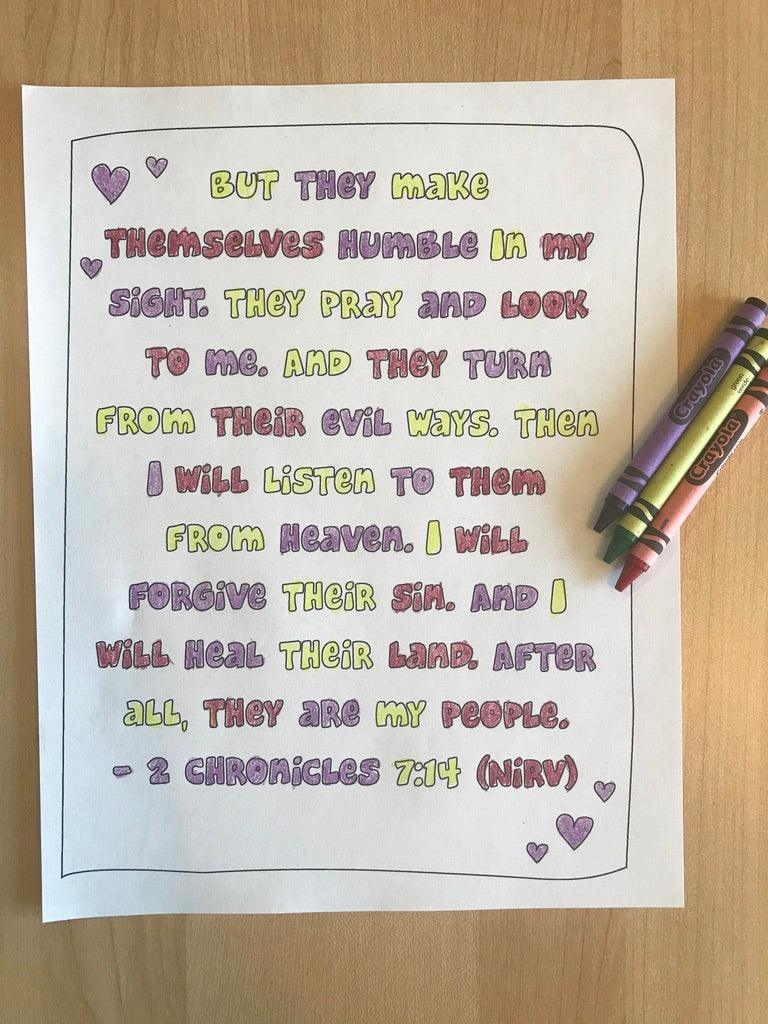 BUT THEY make
THEMSELVES HUMBLE IN MY
SIGHT. THEY PRAY AND LOOK
TO ME. AND THEY TURN
FROM THEIR EVIL WAYS. THEN
I WILL LISTEN TO THEM
FROM HEAVEN. I WILL
FORGIVE THEIR SIN. AND I
WILL HEAL THEIR LAND. AFTER
ALL, THEY ARE MY PEOPLE.
- 2 CHRONICLES 7:14 (NIRV)
Crayola
green
Crayola